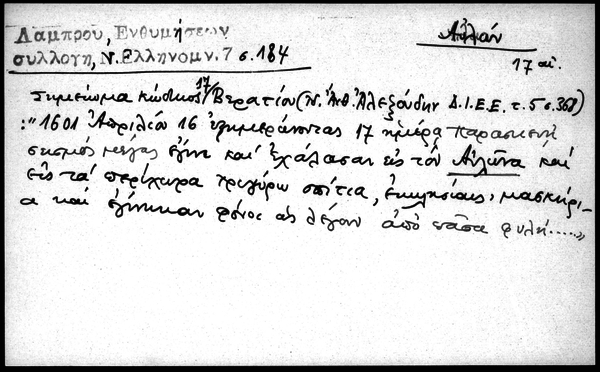 Λαμπρου, Ενθυμήσεων
συλλογη, Ν.Ελληνομν. 7 σ. 184
17 αἰ.
Σημείωμα κώδικος 17 Βερατίου (Ν. Ἀνθ. Ἀλεξούδην Δ.Ι.Ε.Ε. τ. 5 σ. 368)
:"1601 Ἀπριλίου 16 ἐξημερώνοντας 17 ἡμέρα παρασκευή
σεισμός μέγας ἔγινε καί ἐχάλασαν εἰς τόν Αὐλῶνα καί
εἰς τά περίχωρα τρεγύρω σπίτια, ἐκκλησίαις, μασκήρι-
α καί ἐγίνηκαν φόνος ὡς λέγουν ἀπό πᾶσα φυλή.....»